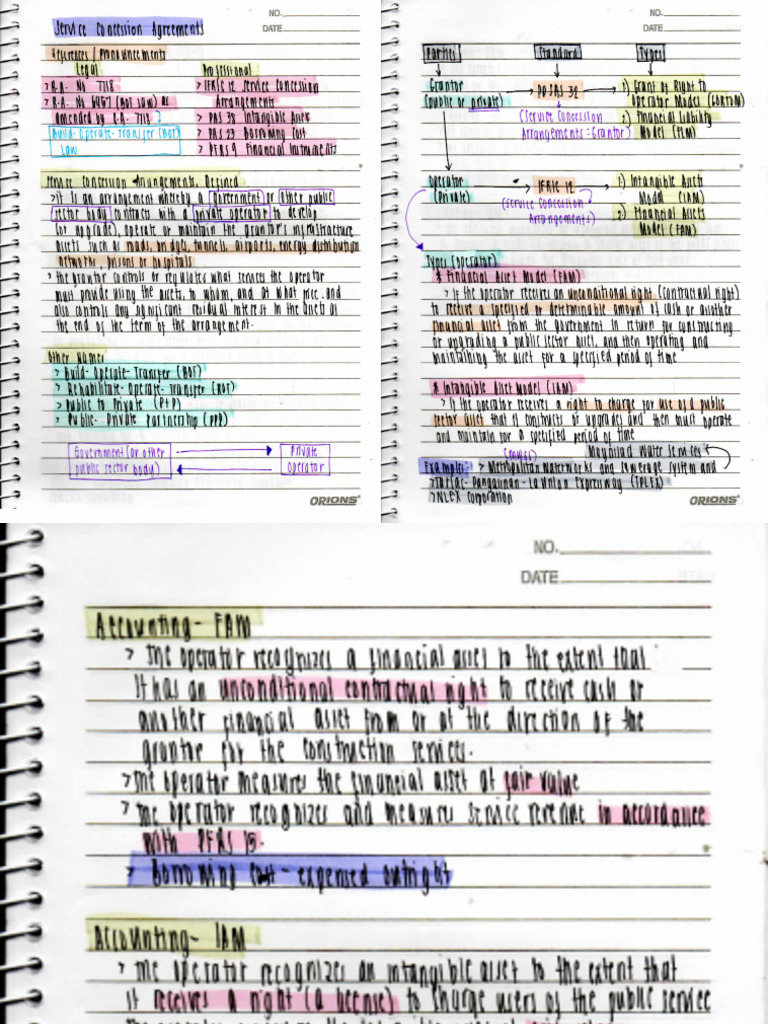 NO.
DATE
Service Concession Agreements
References / Pronouncements
Legal
> R.A. No 7718
> R.A. No 6957 (BOT Law) as
amended by R.A. 7718
Build-Operate-Transfer (BOT)
Law
Professional
> IFRIC 12 Service Concession
Arrangements
> PAS 38 Intangible Asset
> PAS 23 Borrowing Cost
> PFRS 9 Financial Instruments
Service Concession Arrangements, Defined
> It is an arrangement whereby a government or other public
sector body contracts with a private operator to develop
(or upgrade), operate or maintain the grantor's infrastructure
assets such as roads, bridges, tunnels, airports, energy distribution
networks, prisons or hospitals
> The grantor controls or regulates what services the operator
must provide using the assets, to whom, and at what price, and
also controls any significant residual interest in the assets at
the end of the term of the arrangement.
Other Names
> Build-Operate-Transfer (BOT)
> Rehabilitate-Operate-Transfer (ROT)
> Public to Private (PtP)
> Public-Private Partnership (PPP)
Government (or other
public sector body)
Private
Operator
ORIONS
NO.
DATE
Parties
Standard
Types
Grantor
(public or private)
PPSAS 32
(Service Concession
Arrangements: Grantor)
1) Grant of Right to
Operator Model (GORTOM)
2) Financial Liability
Model (FLM)
Operator
(Private)
IFRIC 12
(Service Concession
Arrangements)
1) Intangible Assets
Model (IAM)
2) Financial Assets
Model (FAM)
Types (Operator)
* Financial Asset Model (FAM)
> If the operator receives an unconditional right (contractual right)
to receive a specified or determinable amount of cash or another
financial asset from the government in return for constructing
or upgrading a public sector asset, and then operating and
maintaining the asset for a specified period of time
* Intangible Asset Model (IAM)
> If the operator receives a right to charge for use of a public
sector asset that it constructs or upgrades and then must operate
and maintain for a specified period of time
Services)
Maynilad Water Services
Examples: > Metropolitan Waterworks and Sewerage System and
> Tarlac-Pangasinan-La Union Expressway (TPLEX)
> NLEX Corporation
ORIONS
NO.
DATE
Accounting - FAM
> The operator recognizes a financial asset to the extent that
it has an unconditional contractual right to receive cash or
another financial asset from or at the direction of the
grantor for the construction services.
> The operator measures the financial asset at fair value
> The operator recognizes and measure service revenue in accordance
with PFRS 15.
> Borrowing cost - expensed outright
Accounting - IAM
> The operator recognizes an intangible asset to the extent that
it receives a right (a license) to charge users of the public service